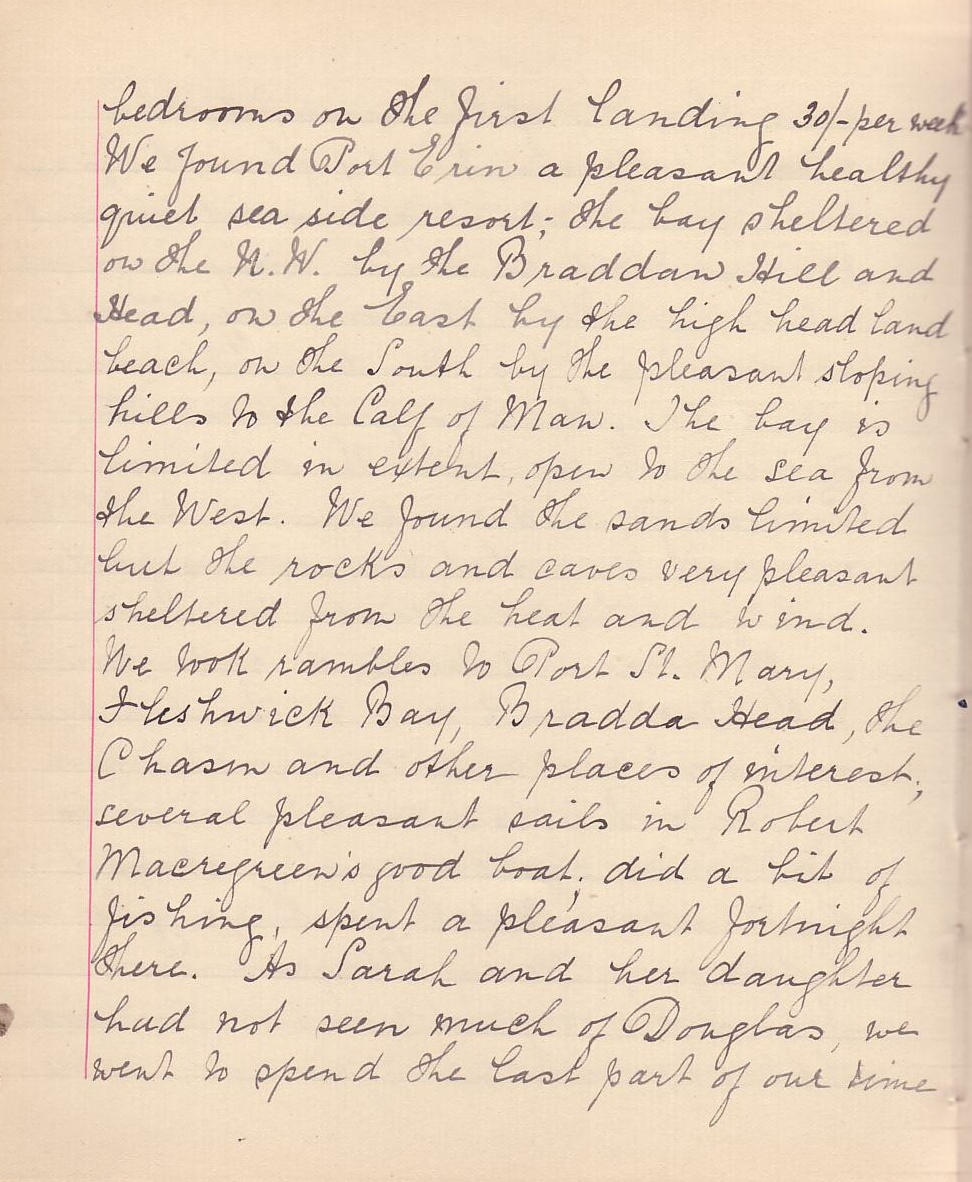 bedrooms on the first landing 30/- per week
We found Port Erin a pleasant healthy
quiet sea side resort; the bay sheltered
on the N.W. by the Braddan Hill and
Head, on the East by the high head land
beach, on the South by the pleasant sloping
hills to the Calf of Man. The bay is
limited in extent, open to the sea from
the West. We found the sands limited
but the rocks and caves very pleasant
sheltered from the heat and wind.
We took rambles to Port St. Mary,
Fleshwick Bay, Bradda Head, the
Chasm and other places of interest;
several pleasant sails in Robert
Macregreen's good boat; did a bit of
fishing, spent a pleasant fortnight
there. As Sarah and her daughter
had not seen much of Douglas, we
went to spend the last part of our time